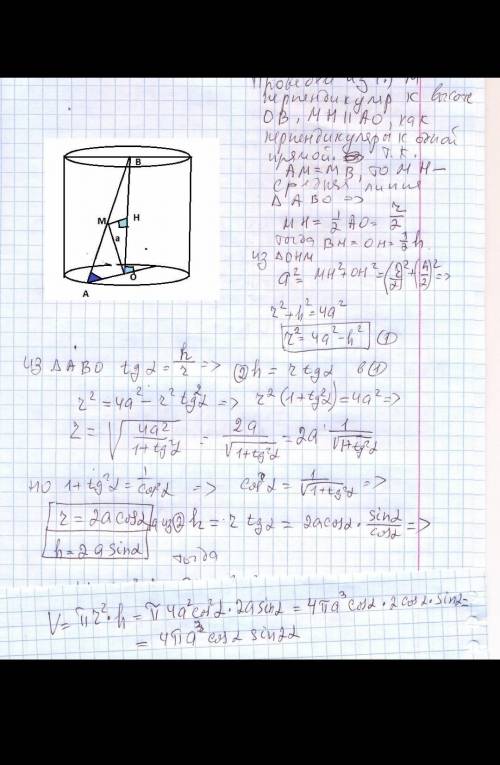 Проведём из т. M
перпендикуляр к высоте
OB, MH || AO, как
перпендикуляры к одной
прямой. Т.к.
AM = MB, то MH –
средняя линия
Δ ABO =>
MH = 1/2 AO = r/2
тогда BH = OH = 1/2 h
из ΔOHM
a² = MH² + OH² = (r/2)² + (h/2)² =>
r² + h² = 4a²
r² = 4a² - h² (1)
B
M
H
a
O
A
из ΔABO tgα = h/r => (2) h = r tgα в (1)
r² = 4a² - r² tg²α => r² (1 + tg²α) = 4a² =>
r = √(4a²/(1+tg²α)) = 2a/√(1+tg²α) = 2a · 1/√(1+tg²α)
но 1 + tg²α = 1/cos²α => cosα = 1/√(1+tg²α) =>
r = 2a cosα, из (2) h = r tgα = 2a cosα · sinα/cosα =>
h = 2a sinα
тогда
V = πr² · h = π 4a² cos²α · 2a sinα = 4πa³ cosα · 2 cosα · sinα =
= 4πa³ cosα sin2α